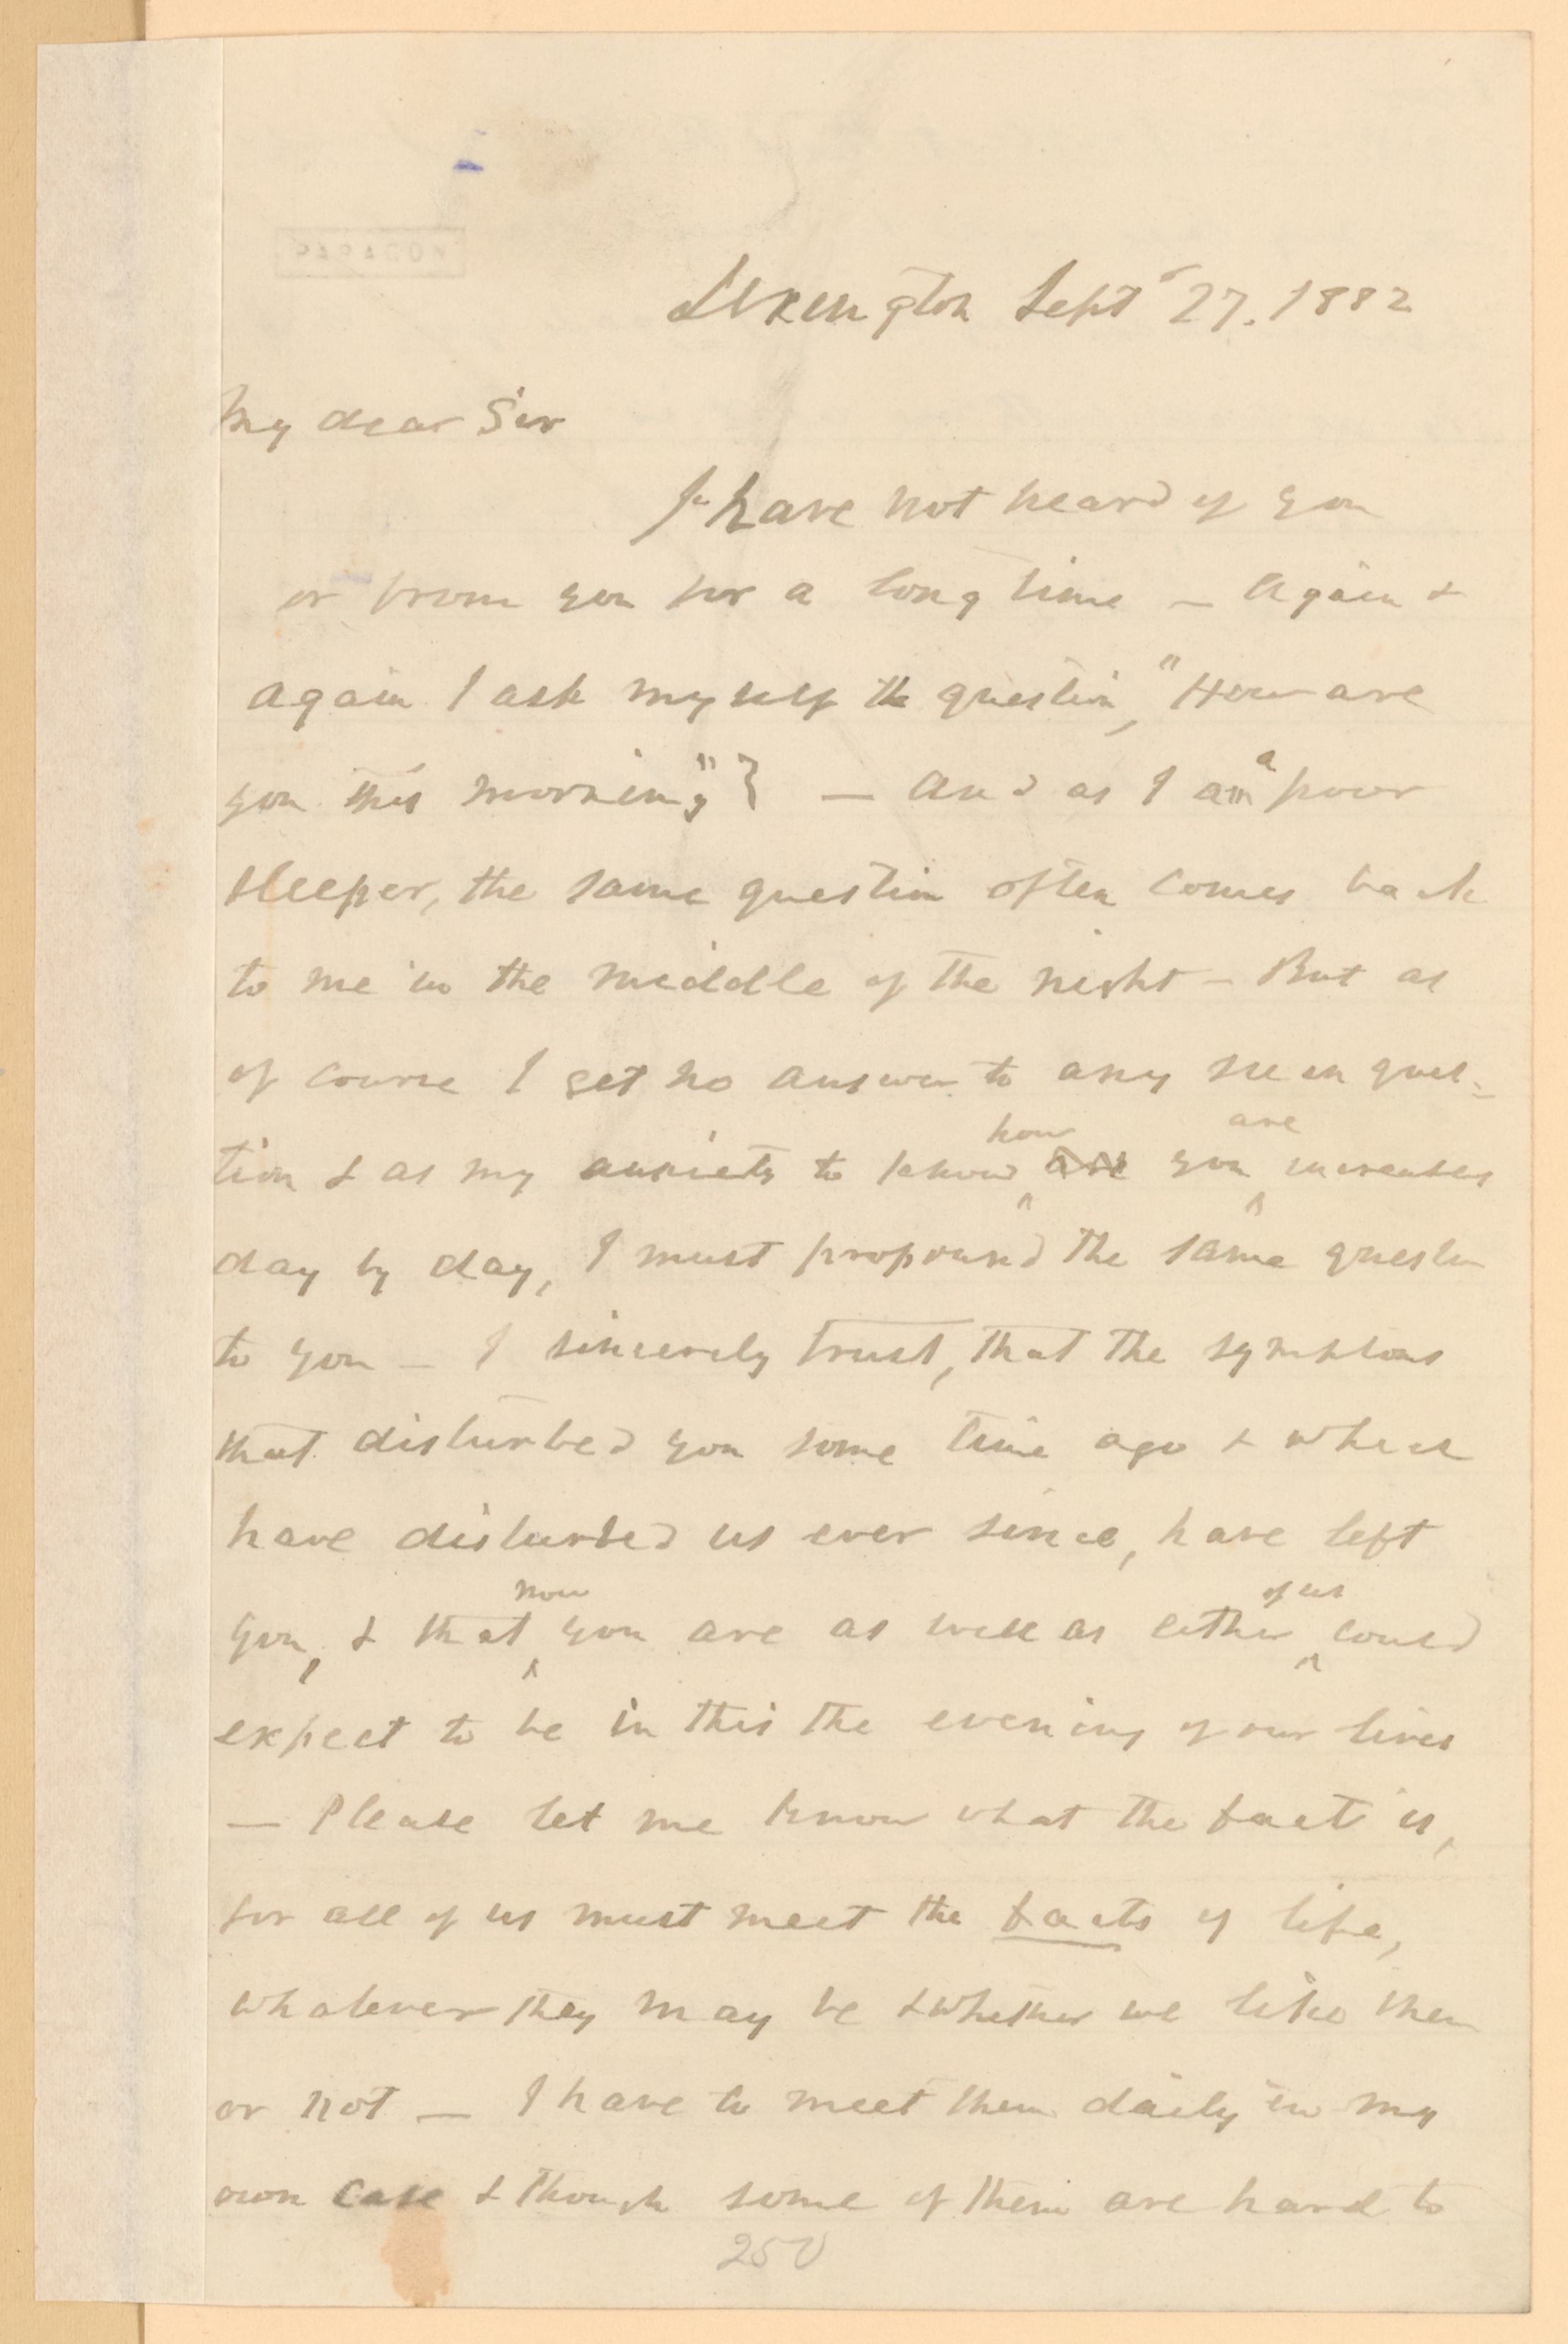 PARAGON
Lexington Sept 27. 1882
My dear Sir
I have not heard of you
or from you for a long time — Again &
again I ask myself the question, "How are
you this morning"? — And as I am a poor
sleeper, the same question often comes back
to me in the middle of the night — But as
of course I get no answer to any such ques-
tion & as my anxiety to know how are you are increases
day by day, I must propound the same question
to you — I sincerely trust, that the symptoms
that disturbed you some time ago & which
have disturbed us ever since, have left
you, & that now you are as well as either of us could
expect to be in this the evening of our lives
— Please let me know what the fact is,
for all of us must meet the facts of life,
whatever they may be & whether we like them
or not — I have to meet them daily in my
own case & though some of them are hard to
250